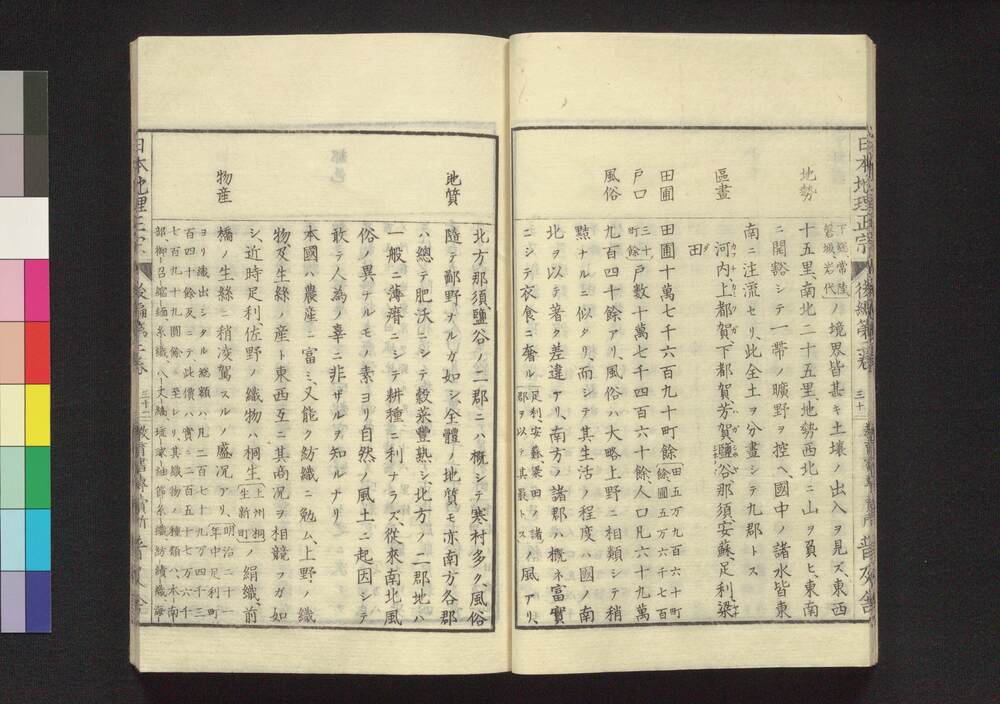 日本地理正宗
後編第二卷
三十一
普及舍
地勢
下總常陸
磐城、岩代
ノ境界皆甚キ土壤ノ出入ヲ見ズ、東西
十五里、南北二十五里、地勢西北ニ山ヲ負ヒ、東南
ニ開豁シテ一帶ノ曠野ヲ控ヘ、國中ノ諸水皆東
南ニ注流セリ、此全土ヲ分畫シテ九郡トス
區畫
河内、上都賀、下都賀、芳賀、鹽谷、那須、安蘇、足利、梁
田
田圃
田圃十萬七千六百九十町餘
田五万九百六十町
餘圃五万六千七百
三十
町餘
戸口
戸数十萬七千四百六十餘、人口凡六十九萬
風俗
九百四十餘アリ、風俗ハ大略上野ニ相類シテ稍
黠ナルニ似タリ、而シテ其生活ノ程度ハ國ノ南
北ヲ以テ著ク差違アリ、南方ノ諸郡ハ概ネ富實
ニシテ衣食ニ奢ル
足利安蘇梁田ノ諸
郡ヲ以テ其最トス
ノ風アリ、
北方那須、鹽谷ノ二郡ニハ概シテ寒村多ク、風俗
隨テ鄙野ナルガ如シ、全體ノ地質モ亦南方各郡
地質
ハ總テ肥沃ニシテ穀菜豐熟シ、北方ノ二郡地ハ
一般ニ薄瘠ニシテ耕種ニ利ナラズ、從來南北風
俗ノ異ナルモノ素ヨリ自然ノ風土ニ起因シテ
敢テ人為ノ辜ニ非ザルヲ知ルナリ
本國ハ農産ニ富ミ、又能ク紡織ニ勉ム、上野ノ織
物及生絲ノ産ト東西互ニ其商况ヲ相競フガ如
物産
シ、近時足利佐野ノ織物ハ桐生
上州桐
生新町
ノ絹織、前
橋ノ生絲ニ稍凌駕スルノ盛况アリ、
明治二十一
年中足利町
ヨリ織出シタル總額ハ凡二百七十九万四千三
百四十餘反ニテ、此價ハ實ニ二百五十七万六千
七百九十九圓餘ニ至レリ、其織物ノ種類ハ、本南
部御召縮緬糸織
日本地理正宗
後編第二卷
三十二